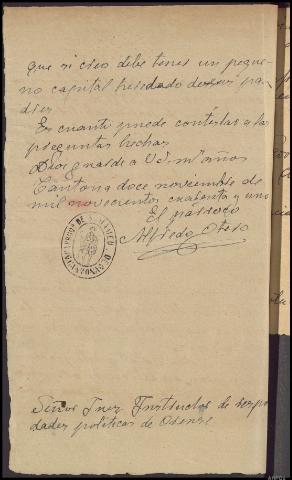 que si creo debe tener un peque
no capital heredado de sus pa
dres
Es cuanto puede contestar a las
preguntas hechas
Dios guarde a Ud. m.s años
Cantoña doce noviembre de
mil novecientos cuarenta y uno
El párroco
Alfredo
Señor Juez Instructor de respo
dades políticas de Orense